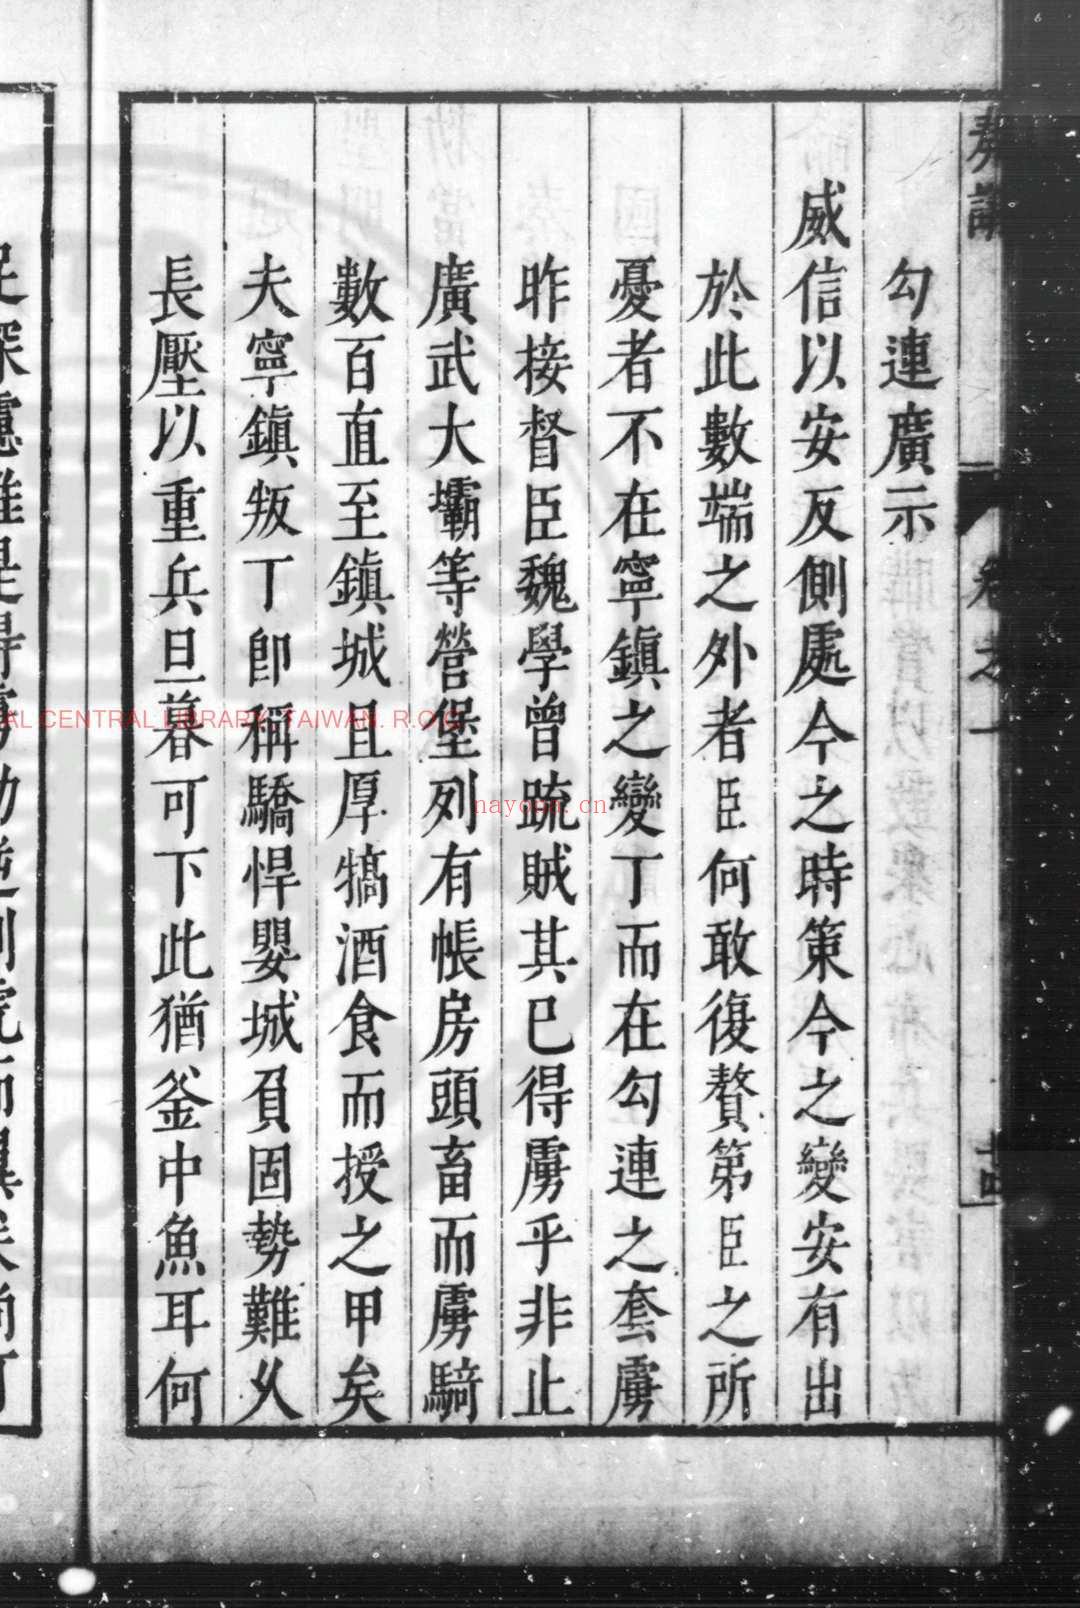 奏議
卷之一
十四
勾連廣示
威信以安反側處今之時策今之變安有出
於此數端之外者臣何敢復贅第臣之所
憂者不在寧鎮之變丁而在勾連之套虜
昨接督臣魏學曾䟽賊其已得虜乎非止
廣武大壩等營堡列有帳房頭畜而虜騎
數百直至鎮城且厚犒酒食而授之甲矣
夫寧鎮叛丁卽稱驕悍嬰城負固勢難久
長壓以重兵旦暮可下此猶釜中魚耳何
NAL CENTRAL LIBRARY, TAIWAN. R.O.C
nayona.cn